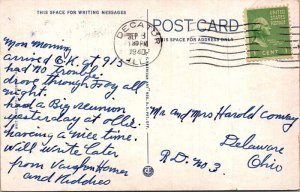 THIS SPACE FOR WRITING MESSAGES
POST CARD
THIS SPACE FOR ADDRESS ONLY
DECATUR
SEP 3
PM
1940
ILL.
1 CENT
Mon Morning
arrived O.K. at 9/5
had no trouble.
drove through Foy all
night.
had a Big reunion
yesterday at Ollie.
having a nice time.
Will write later
from Vaughn Homer
and Kiddies
Mr and Mrs Harold Conway
Delaware
R.D. No 3 Ohio